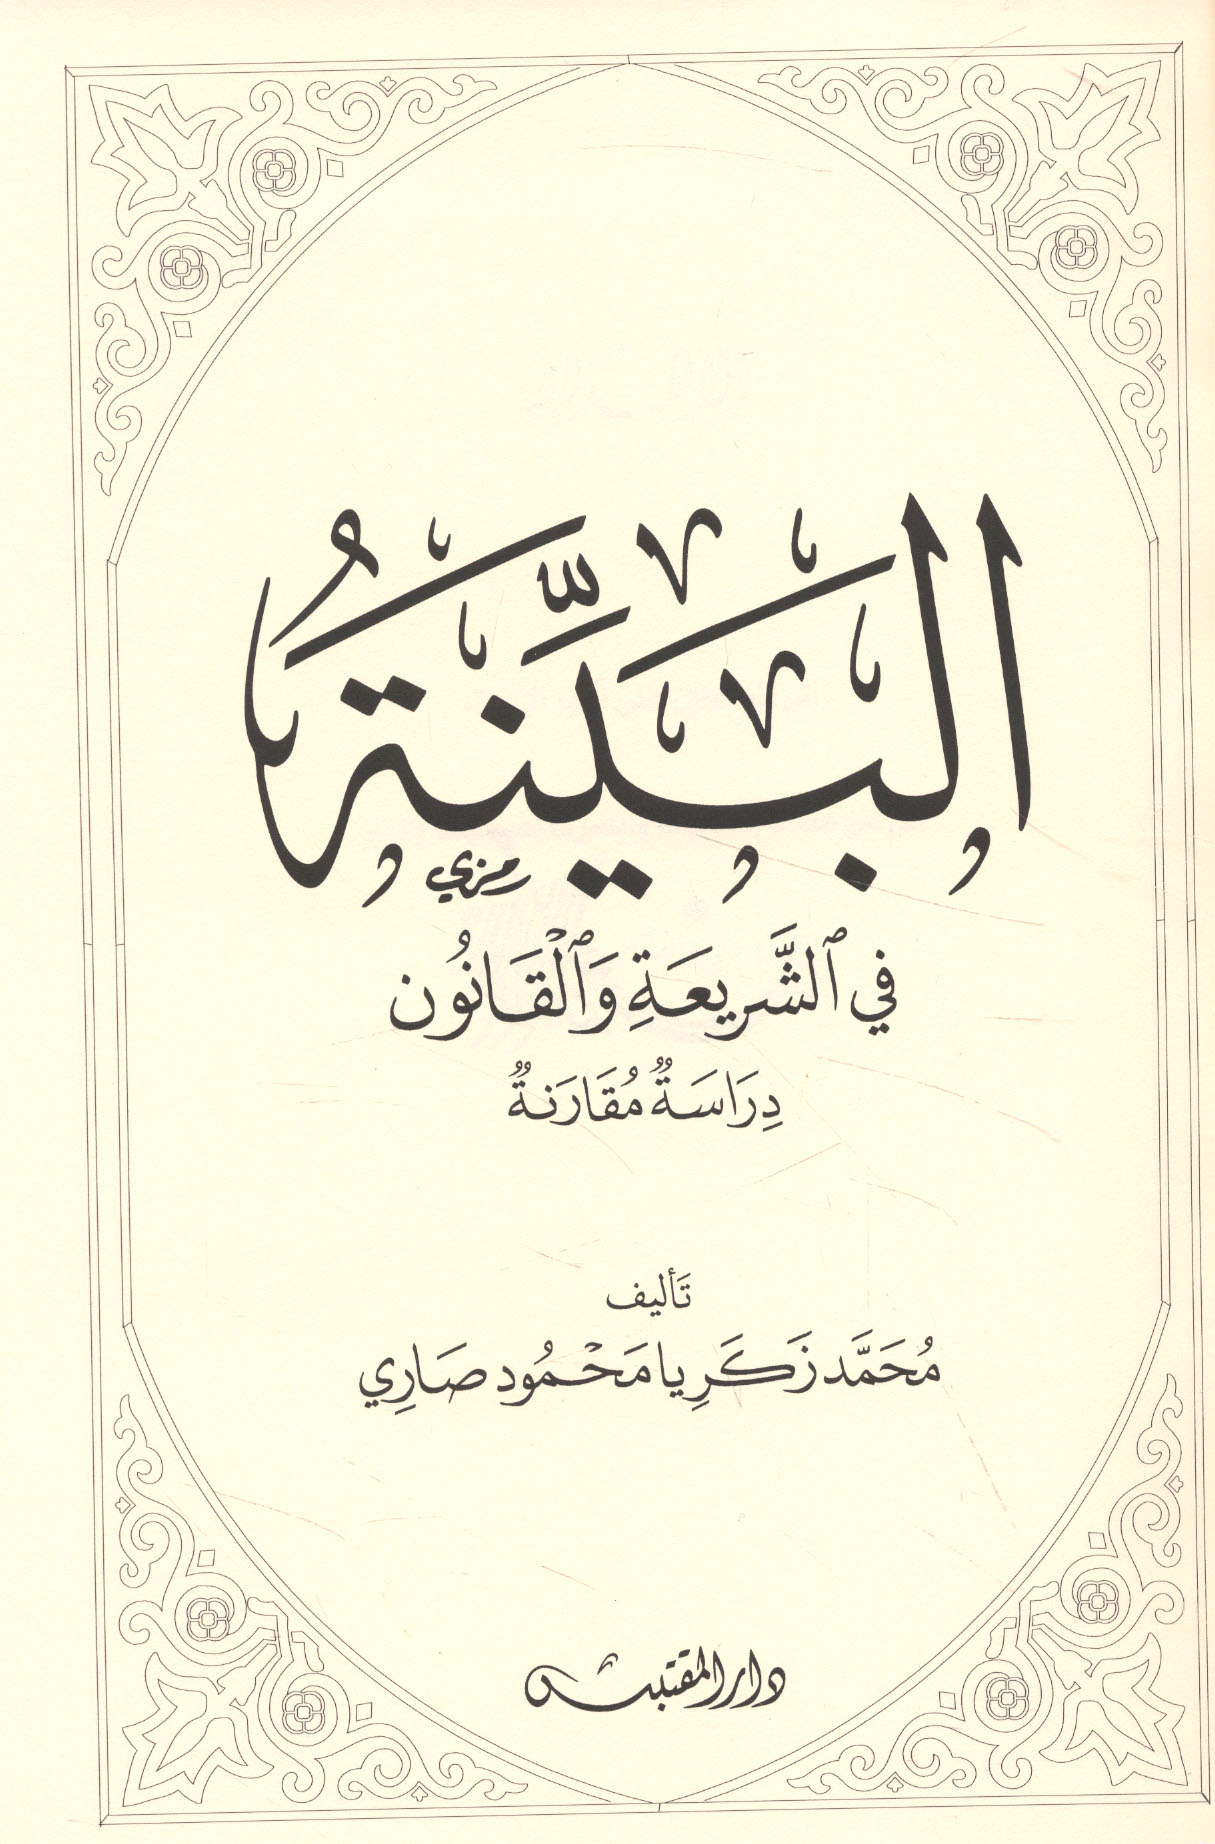 البَيِّنَةُ
رمزي
في ٱلشَّرِيعَةِ وَٱلْقَانُون
دِرَاسَةٌ مُقَارَنَةٌ
تَأليف
مُحَمَّد زَكَرِيا مَحْمُود صَارِي
دار المقتبس